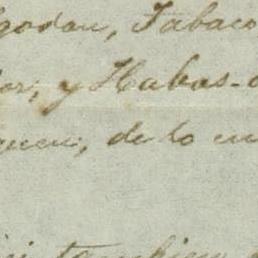 godon, Tabaco
or, y Habas-
quen, de lo en
tambien